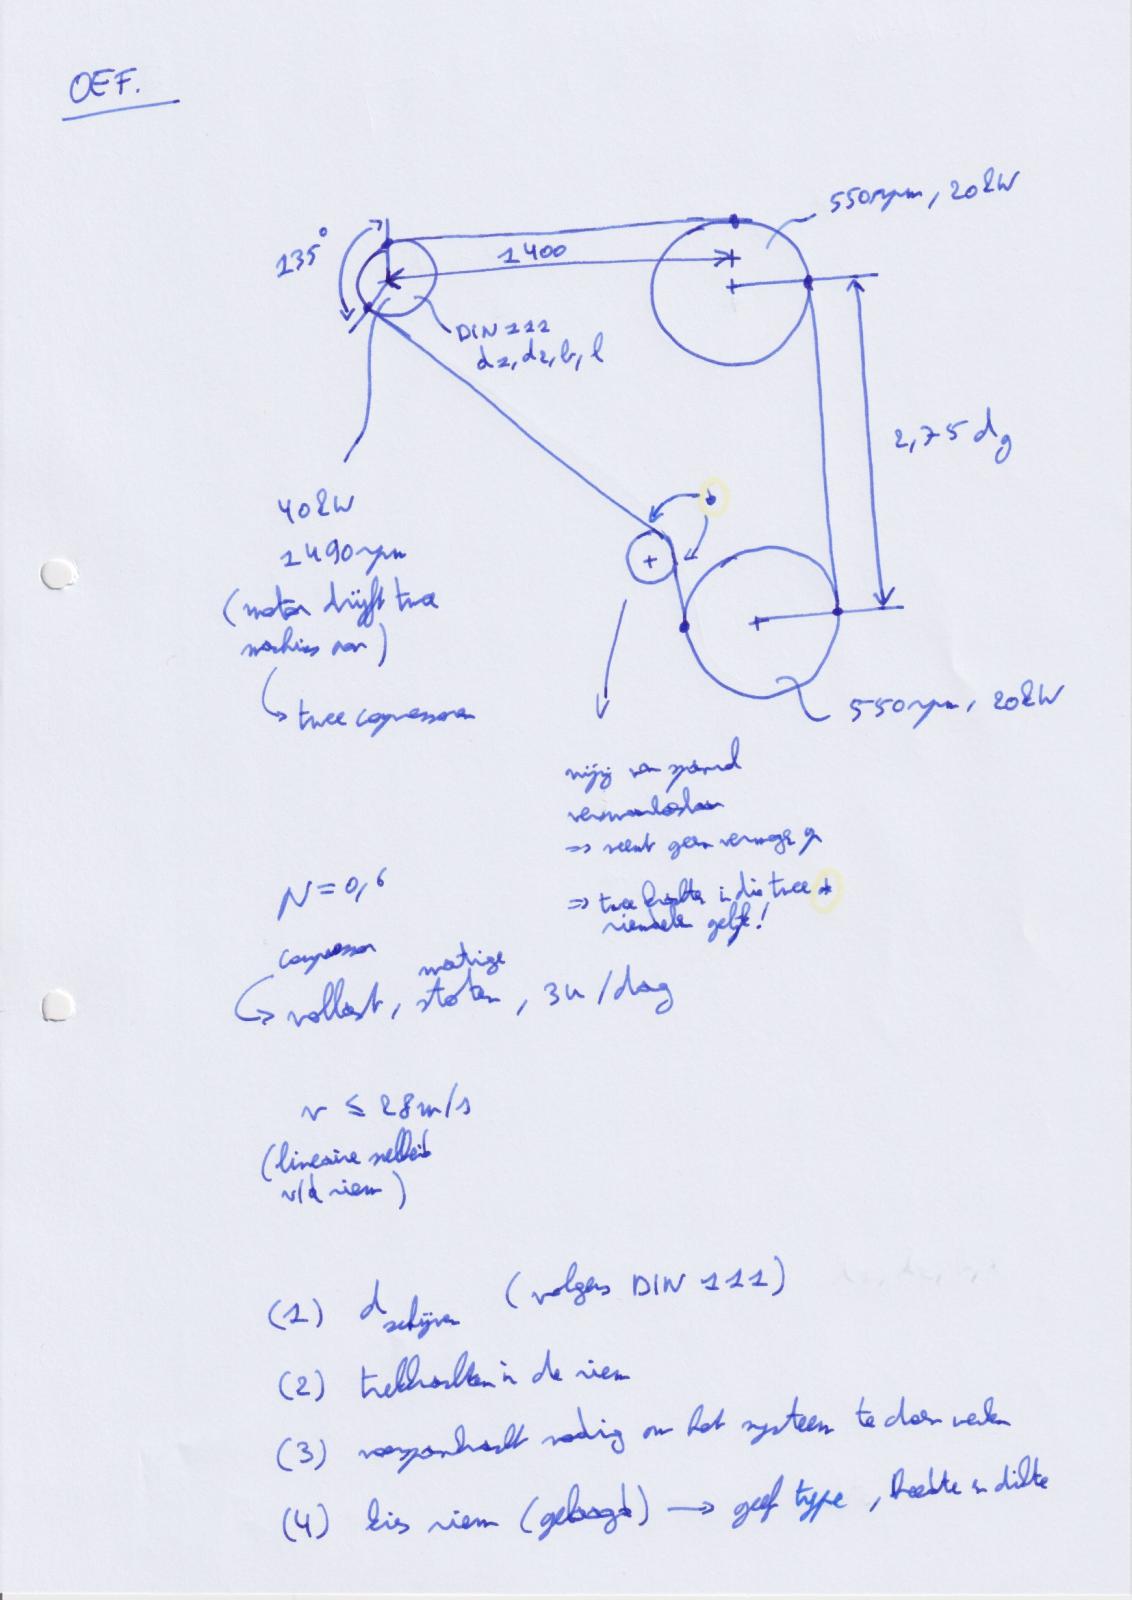 OEF.
550rpm, 20kW
135°
1400
DIN 111
d1, d2, b, l
2,75 dg
40kW
1490rpm
(motor drijft twee
machines aan)
twee compressoren
550rpm, 20kW
wrijv van spanrol
verwaarlozen
=> neemt geen vermogen op
=> twee krachten in die twee *
riemdelen gelijk!
μ = 0,6
compressor
vollast, matige stoten, 3u/dag
v ≤ 28m/s
(lineaire snelheid
v/d riem)
(1) d schijven (volgens DIN 111)
(2) trekkrachten in de riem
(3) voorspankracht nodig om het systeem te doen werken
(4) kies riem (gelaagd) → geef type, breedte en dikte